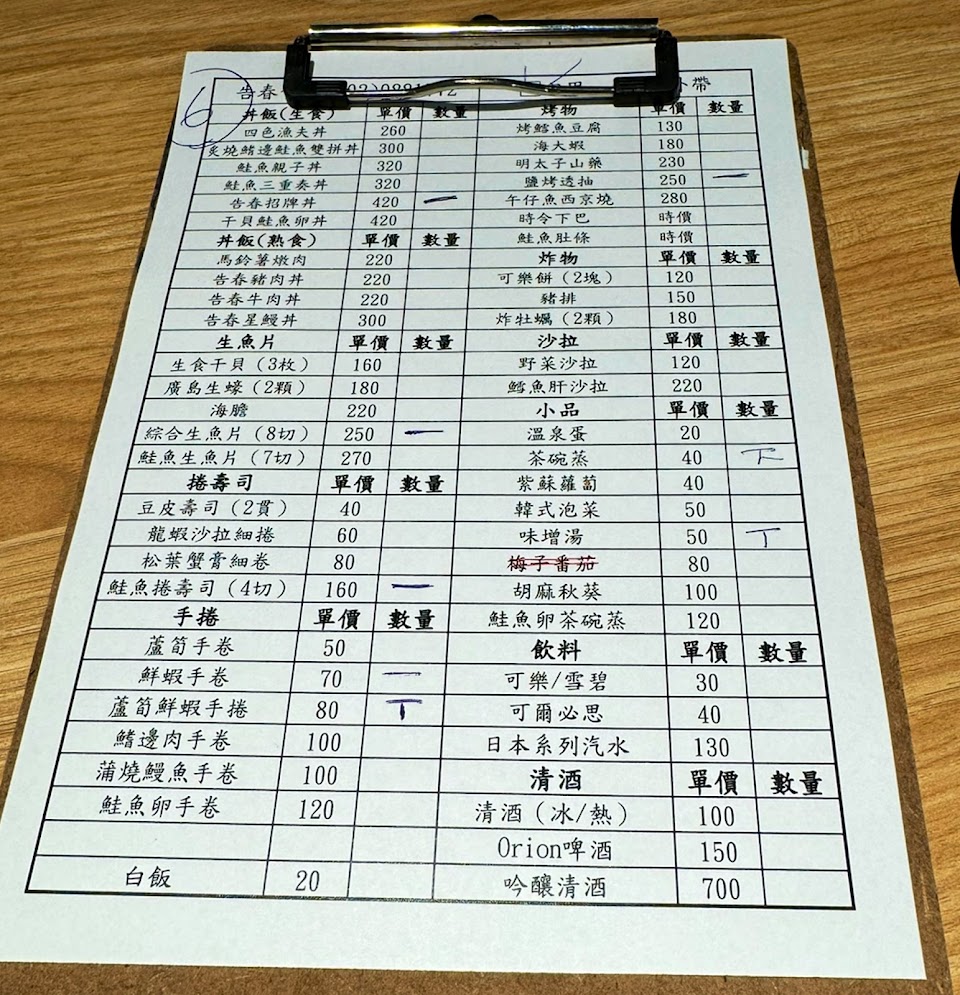 6
告春
外帶
丼飯(生食) 單價 數量 烤物 單價 數量
四色漁夫丼 260 烤鱈魚豆腐 130
炙燒鰭邊鮭魚雙拼丼 300 海大蝦 180
鮭魚親子丼 320 明太子山藥 230
鮭魚三重奏丼 320 鹽烤透抽 250 一
告春招牌丼 420 一 午仔魚西京燒 280
干貝鮭魚卵丼 420 時令下巴 時價
丼飯(熟食) 單價 數量 鮭魚肚條 時價
馬鈴薯燉肉 220 炸物 單價 數量
告春豬肉丼 220 可樂餅(2塊) 120
告春牛肉丼 220 豬排 150
告春星鰻丼 300 炸牡蠣(2顆) 180
生魚片 單價 數量 沙拉 單價 數量
生食干貝(3枚) 160 野菜沙拉 120
廣島生蠔(2顆) 180 鱈魚肝沙拉 220
海膽 220 小品 單價 數量
綜合生魚片(8切) 250 一 溫泉蛋 20
鮭魚生魚片(7切) 270 茶碗蒸 40
捲壽司 單價 數量 紫蘇蘿蔔 40
豆皮壽司(2貫) 40 韓式泡菜 50
龍蝦沙拉細捲 60 味增湯 50 丅
松葉蟹膏細卷 80 梅子番茄 80
鮭魚捲壽司(4切) 160 一 胡麻秋葵 100
手捲 單價 數量 鮭魚卵茶碗蒸 120
蘆筍手卷 50 飲料 單價 數量
鮮蝦手卷 70 一 可樂/雪碧 30
蘆筍鮮蝦手捲 80 丅 可爾必思 40
鰭邊肉手卷 100 日本系列汽水 130
蒲燒鰻魚手卷 100 清酒 單價 數量
鮭魚卵手卷 120 清酒(冰/熱) 100
Orion啤酒 150
白飯 20 吟釀清酒 700